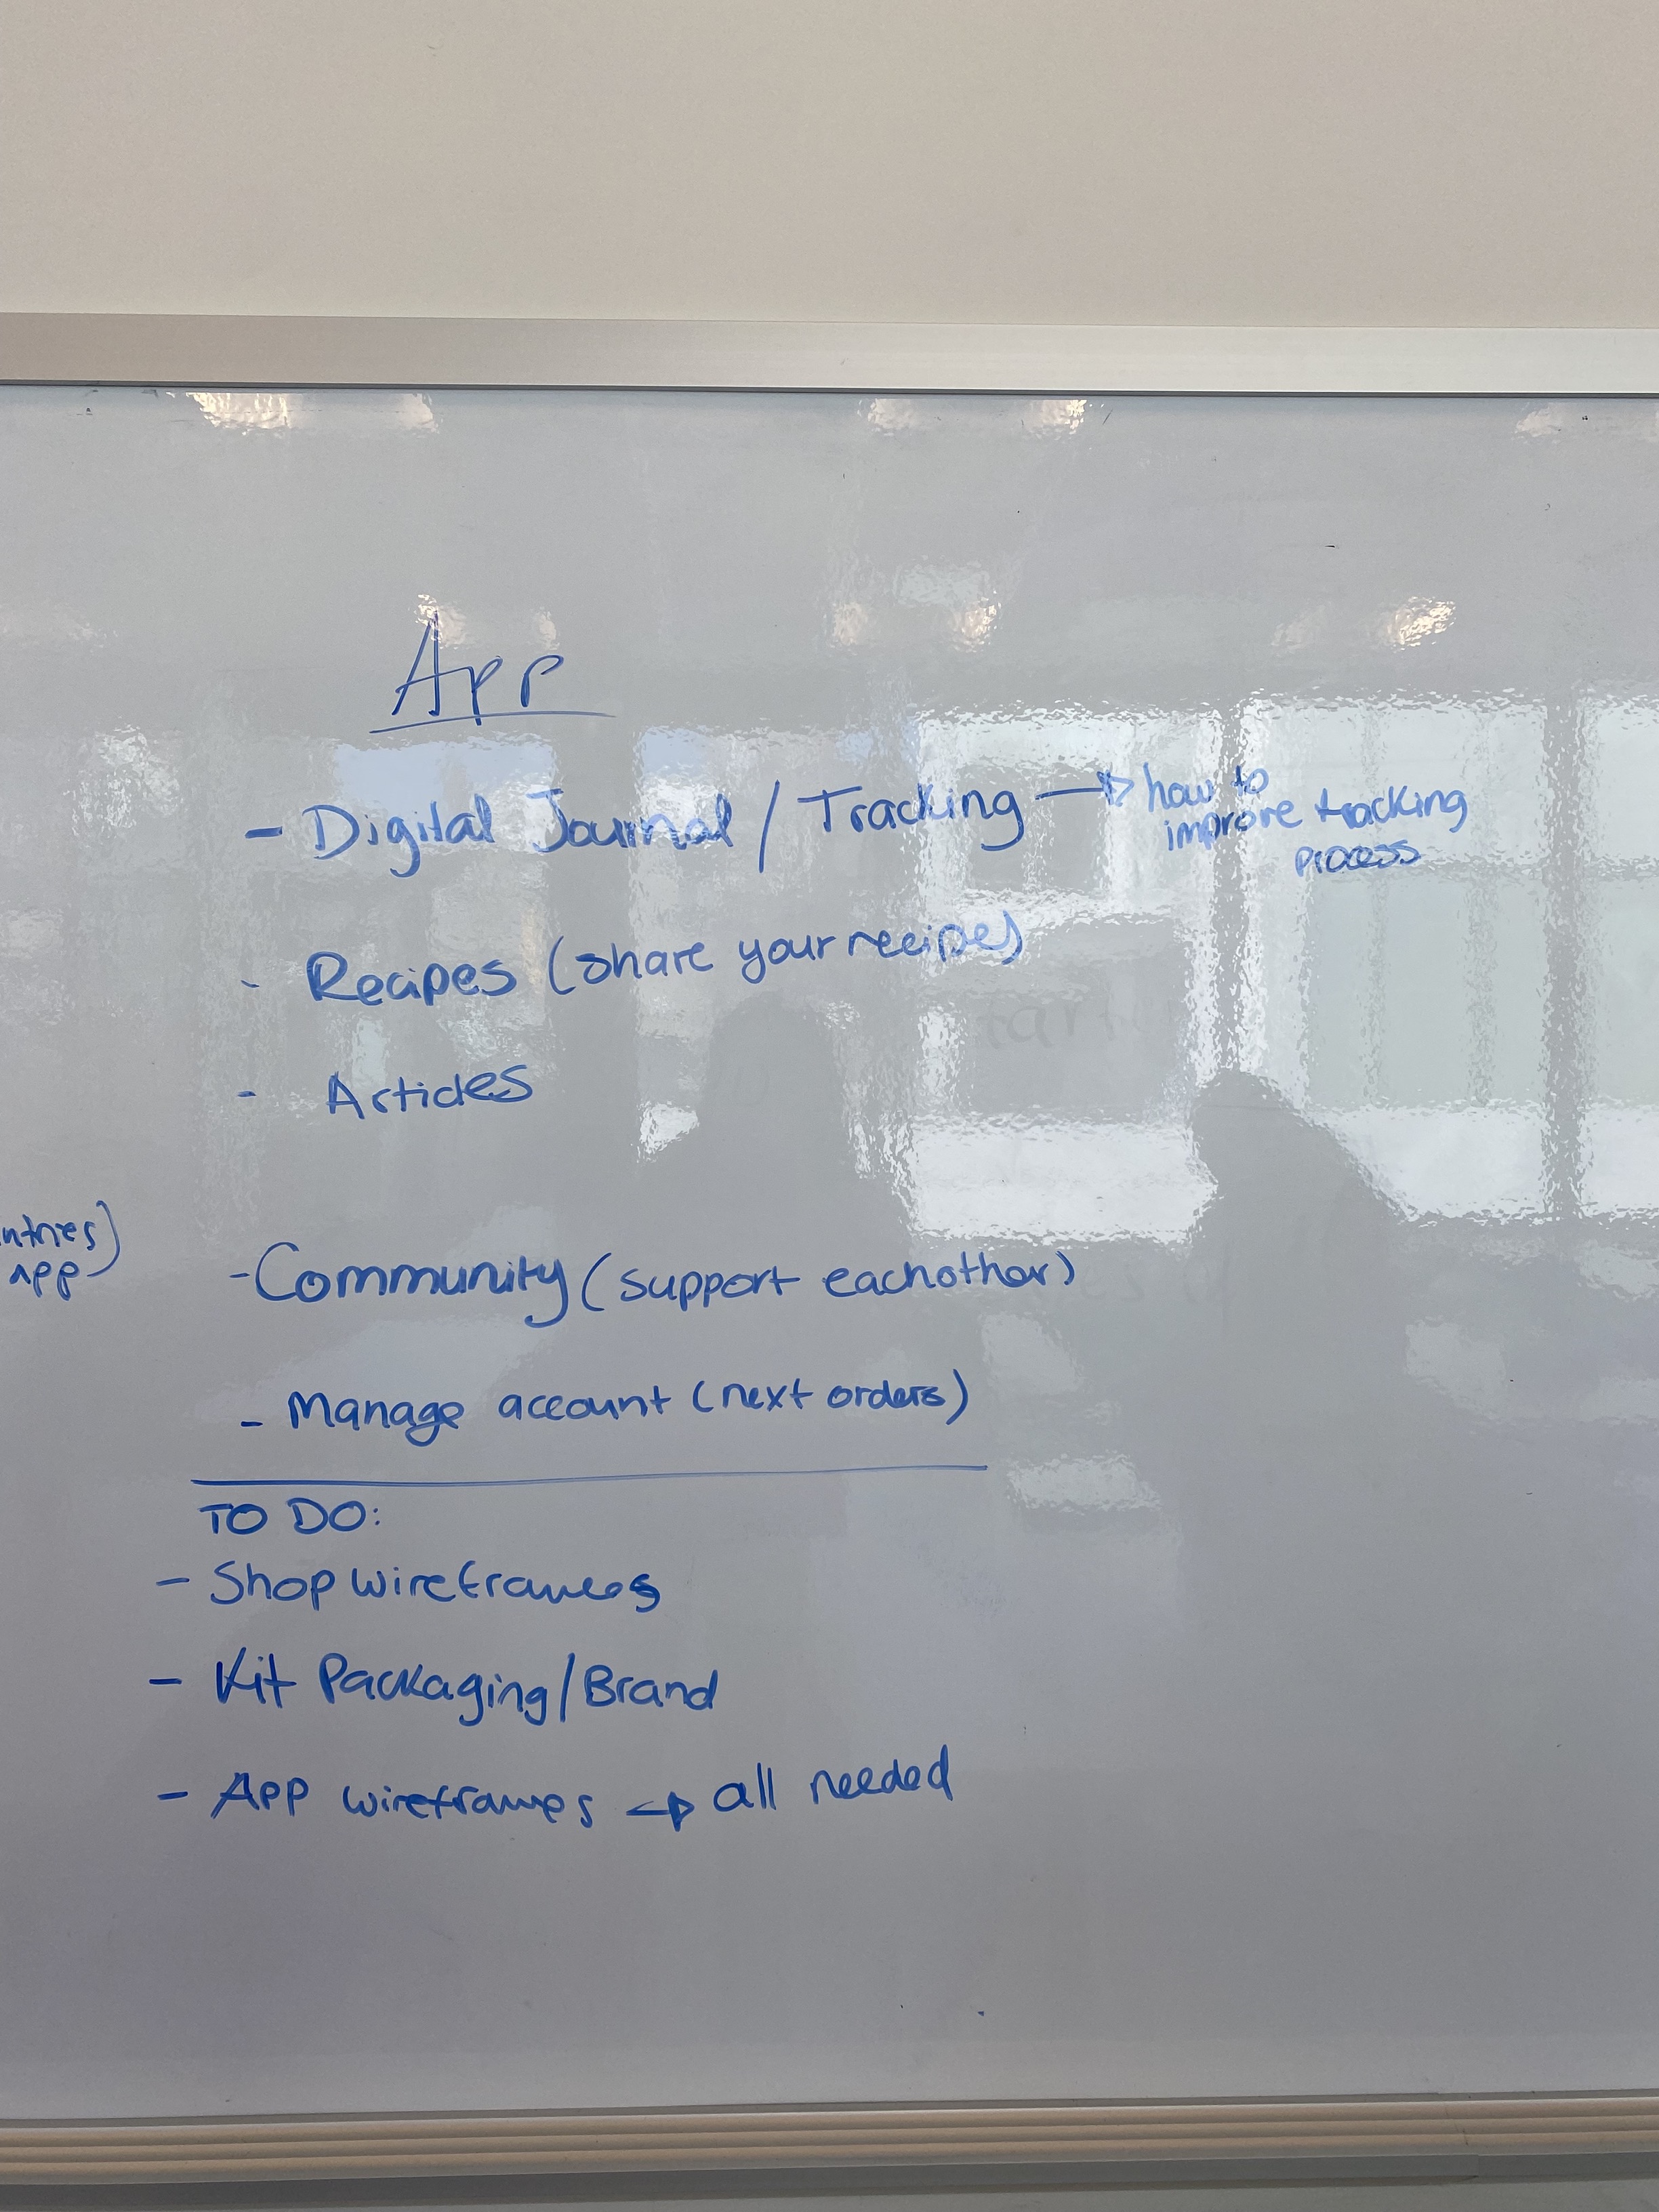 App
- Digital Journal / Tracking → how to
improve tracking
process
- Recipes (share your recipes)
- Articles
app)
- Community (support eachother)
- Manage account (next orders)
TO DO:
- Shop wireframes
- Kit Packaging/Brand
- App wireframes → all needed